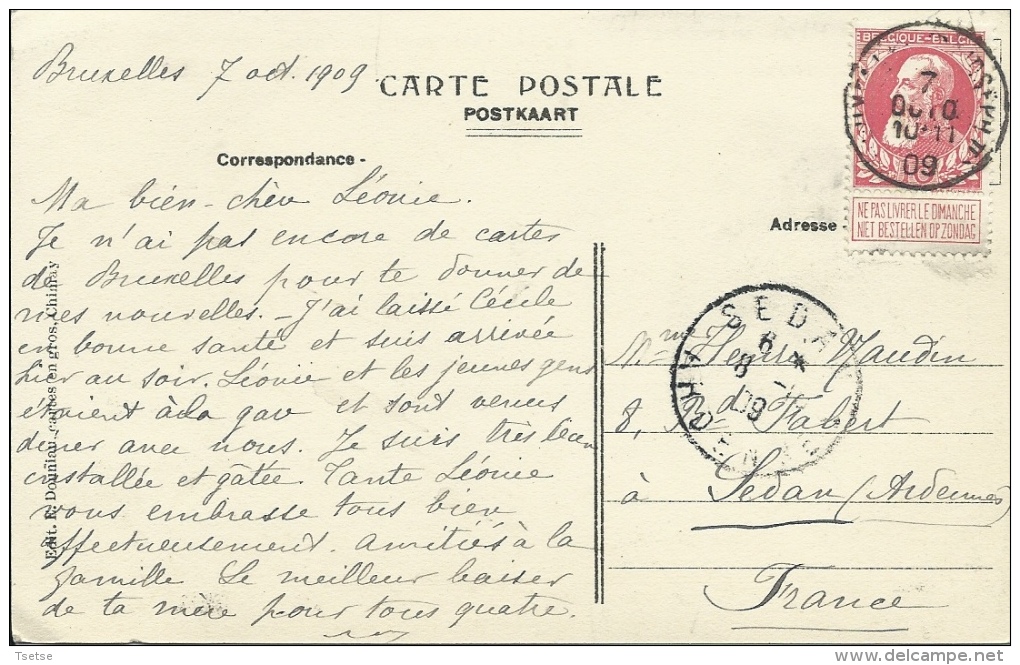 Bruxelles 7 oct. 1909
CARTE POSTALE
POSTKAART
Correspondance -
Ma bien-chère Léonie.
Je n'ai pas encore de cartes
de Bruxelles pour te donner de
mes nouvelles. - J'ai laissé Cécile
en bonne santé et suis arrivée
hier au soir. Léonie et les jeunes gens
étaient à la gare et sont venus
diner avec nous. Je suis très bien
installée et gâtée. Tante Léonie
vous embrasse tous bien
affectueusement. Amitiés à la
famille Le meilleur baiser
de ta mère pour tous quatre.
Edit. F. Douniau, cartes en gros, Chimay
BELGIQUE-BELGIË
7
OCTO
10-11
09
NE PAS LIVRER LE DIMANCHE
NIET BESTELLEN OP ZONDAG
Adresse -
SEDAN
8
09
Mme Henri Naudin
8, Bd Fabert
à Sedan (Ardennes)
France
Tsetse
delcampe.net